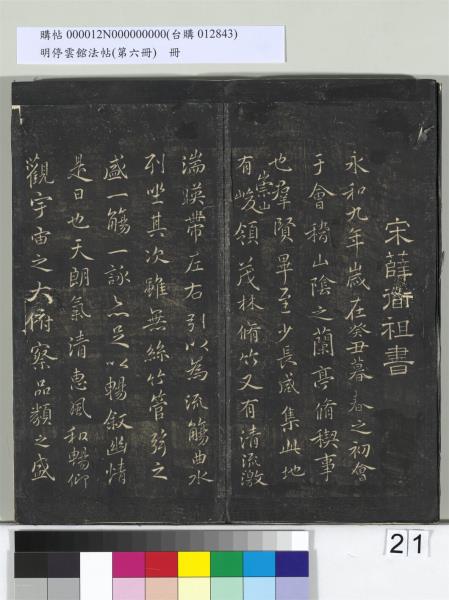 購帖 000012N000000000(台購 012843)
明停雲館法帖(第六冊) 冊
宋薛紹祖書
永和九年歲在癸丑暮春之初會
于會稽山陰之蘭亭脩稧事
也羣賢畢至少長咸集此地
有崇山峻領茂林脩竹又有清流激
湍暎帶左右引以為流觴曲水
列坐其次雖無絲竹管弦之
盛一觴一詠亦足以暢敘幽情
是日也天朗氣清惠風和暢仰
觀宇宙之大俯察品類之盛
21